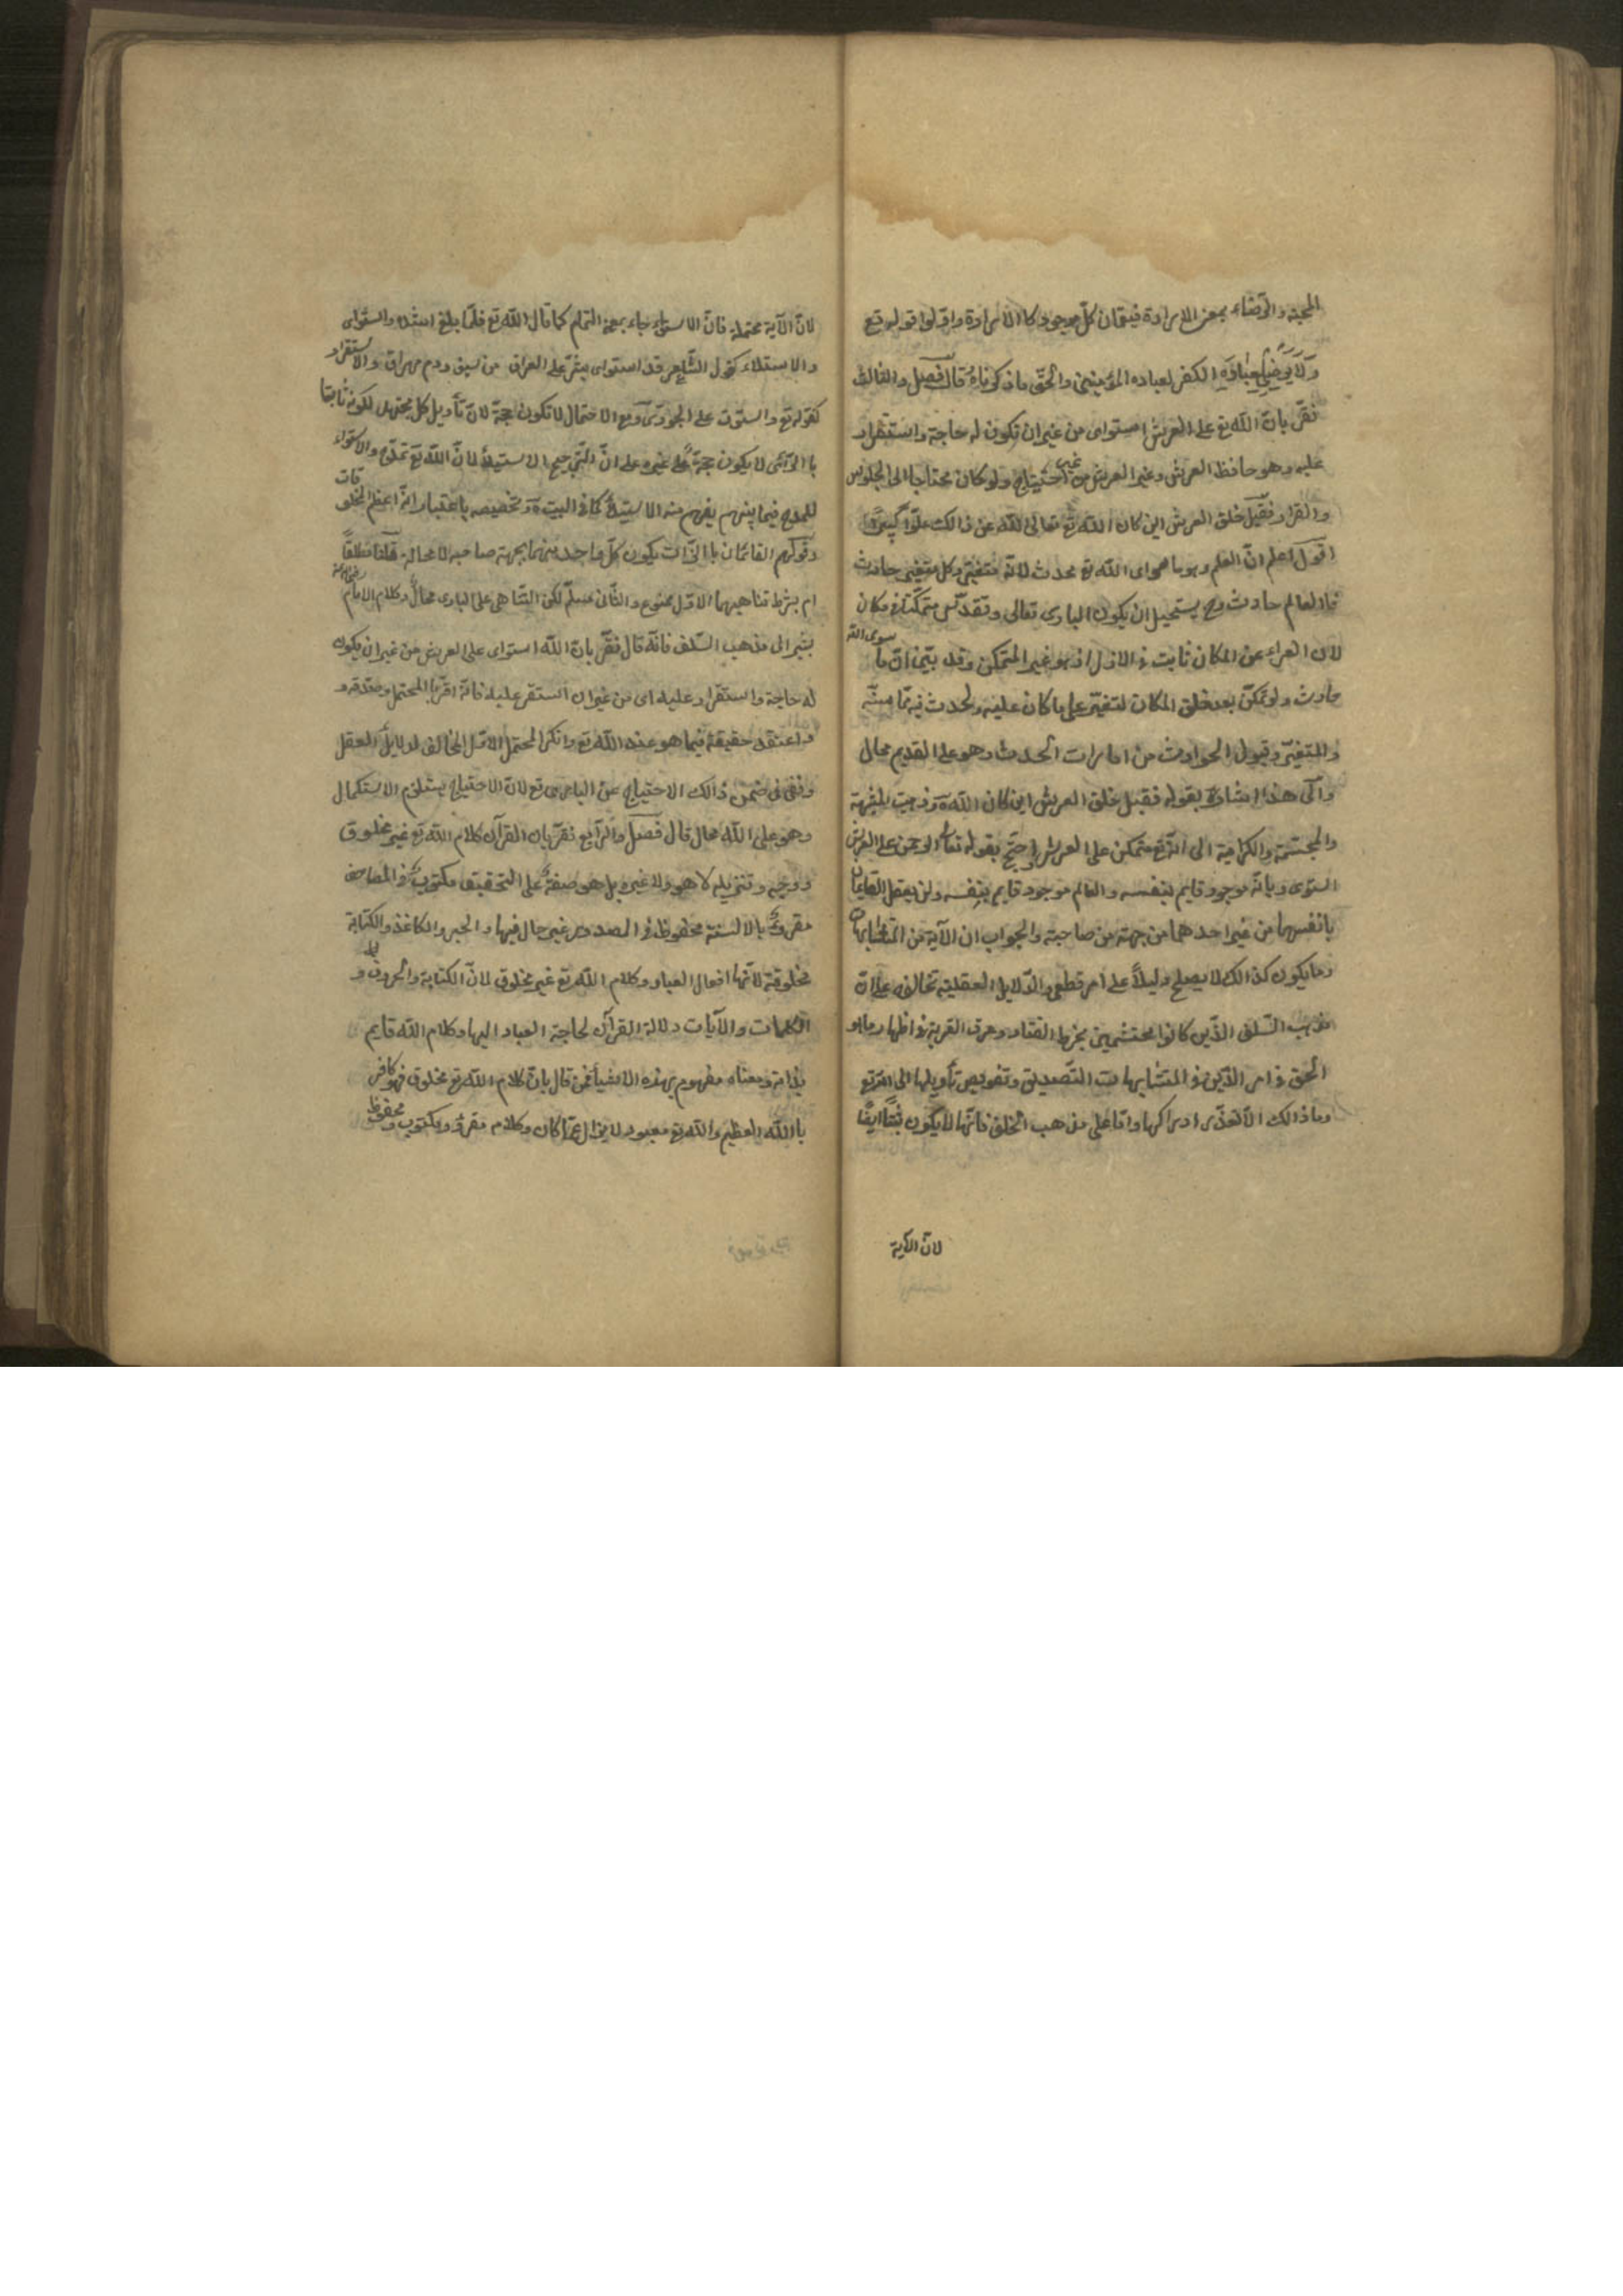 المحبة والرضاء بمعنى الارادة فيعمان كل موجود كالارادة واولوا قوله تع
ولا يرضى لعباده الكفر لعباده المؤمنين والحق ما ذكرناه قال فصل والثالث
نقر بان الله تع على العرش استوى من غير ان تكون له حاجة واستقرار
عليه وهو حافظ العرش وغير العرش من غير احتياج ولو كان محتاجا الى الجلوس
والقرار فقبل خلق العرش اين كان الله تع تعالى الله عن ذالك علوا كبيرا
اقول اعلم ان العلم وهو ما سواى الله تع محدث لانه متغير وكل متغير حادث
فالعالم حادث وح يستحيل ان يكون البارى تعالى وتقدس متمكنا فى مكان
لان العراء عن المكان ثابت فى الازل اذ هو غير المتمكن وقد بين ان ما سوى الله
حادث ولو تمكن بعد خلق المكان لتغير على ما كان عليه ولحدث فيه مماسة
والمتغير وقبول الحوادث من امارات الحدث وهو على القديم محال
والى هذا اشارة بقوله فقبل خلق العرش اين كان الله تع وذهبت المشبهة
والمجسمة والكرامية الى انه تع متمكن على العرش واحتج بقوله تعالى الرحمن على العرش
استوى وبانه موجود قايم بنفسه والعالم موجود قايم بنفسه ولن يعقل القايمان
بانفسهما من غير احدهما من جهة من صاحبه والجواب ان الآية من المتشابهات
وما يكون كذالك لا يصلح دليلا على امر قطعى والدلايل العقلية تخالفه على ان
مذهب السلف الذين كانوا محتشمين بخرط القتاد وعرق القربة فى اظهار ما هو
الحق فى امر الدين فى المتشابهات التصديق وتفويض تأويلها الى الله تع
وما ذالك الا لتعذر ادراكها واما على مذهب الخلف فانها لا يكون ايضا
لان الآية
لان الآية محتملة فان الاستواء جاء بمعنى التمام كما قال الله تع فلما بلغ اشده واستوى
والاستيلاء كقول الشاعر قد استوى بشر على العراق من سيف ودم مهراق والاستقرار
كقوله تع واستوت على الجودى ومع الاحتمال لا تكون حجة لان تأويل كل محتمل لكونه ثابتا
باالرأى لا يكون حجة على غيره على ان الترجيح الاستيلاء لان الله تع تمدح والاستواء
للمدح فيما بينهم يفهم منه الاستيلاء كما فى البيت وتخصيصه باعتبار انه اعظم المخلوقات
وقولهم القائمان باالذات يكون كل واحد منهما بجهة صاحبه لا محالة قلنا مطلقا
ام بشرط تناهيهما الاول ممنوع والثانى مسلم لكن التناهى على البارى محال وكلام الامام رضى الله عنه
يشير الى مذهب السلف فانه قال نقر بان الله استوى على العرش من غير ان يكون
له حاجة واستقرار عليه اى من غير ان استقر عليه فانه اقر باالمحتمل وصدقه و
اعتقد حقيقة فيما هو عند الله تع وانكر المحتمل الاول المخالف لدلايل العقل
ونفى فى ضمن ذالك الاحتياج عن البارى تع لان الاحتياج يستلزم الاستكمال
وهو على الله محال قال فصل والرابع نقر بان القرآن كلام الله تع غير مخلوق
ووحيه وتنزيله لا هو ولا غيره بل هو صفة على التحقيق مكتوب فى المصاحف
مقروئة باالالسنة محفوظ فى الصدور غير حال فيها والحبر والكاغذ والكتابة
مخلوقة لانها افعال العباد وكلام الله تع غير مخلوق لان الكتابة والحروف و
الكلمات والآيات دلالة القرآن لحاجة العباد اليها وكلام الله قايم
بذاته ومعناه مفهوم بهذه الاشياء فمن قال بان كلام الله تع مخلوق فهو كافر
باالله العظيم والله تع معبود لا يزال عما كان وكلام مقرؤ ومكتوب ومحفوظ